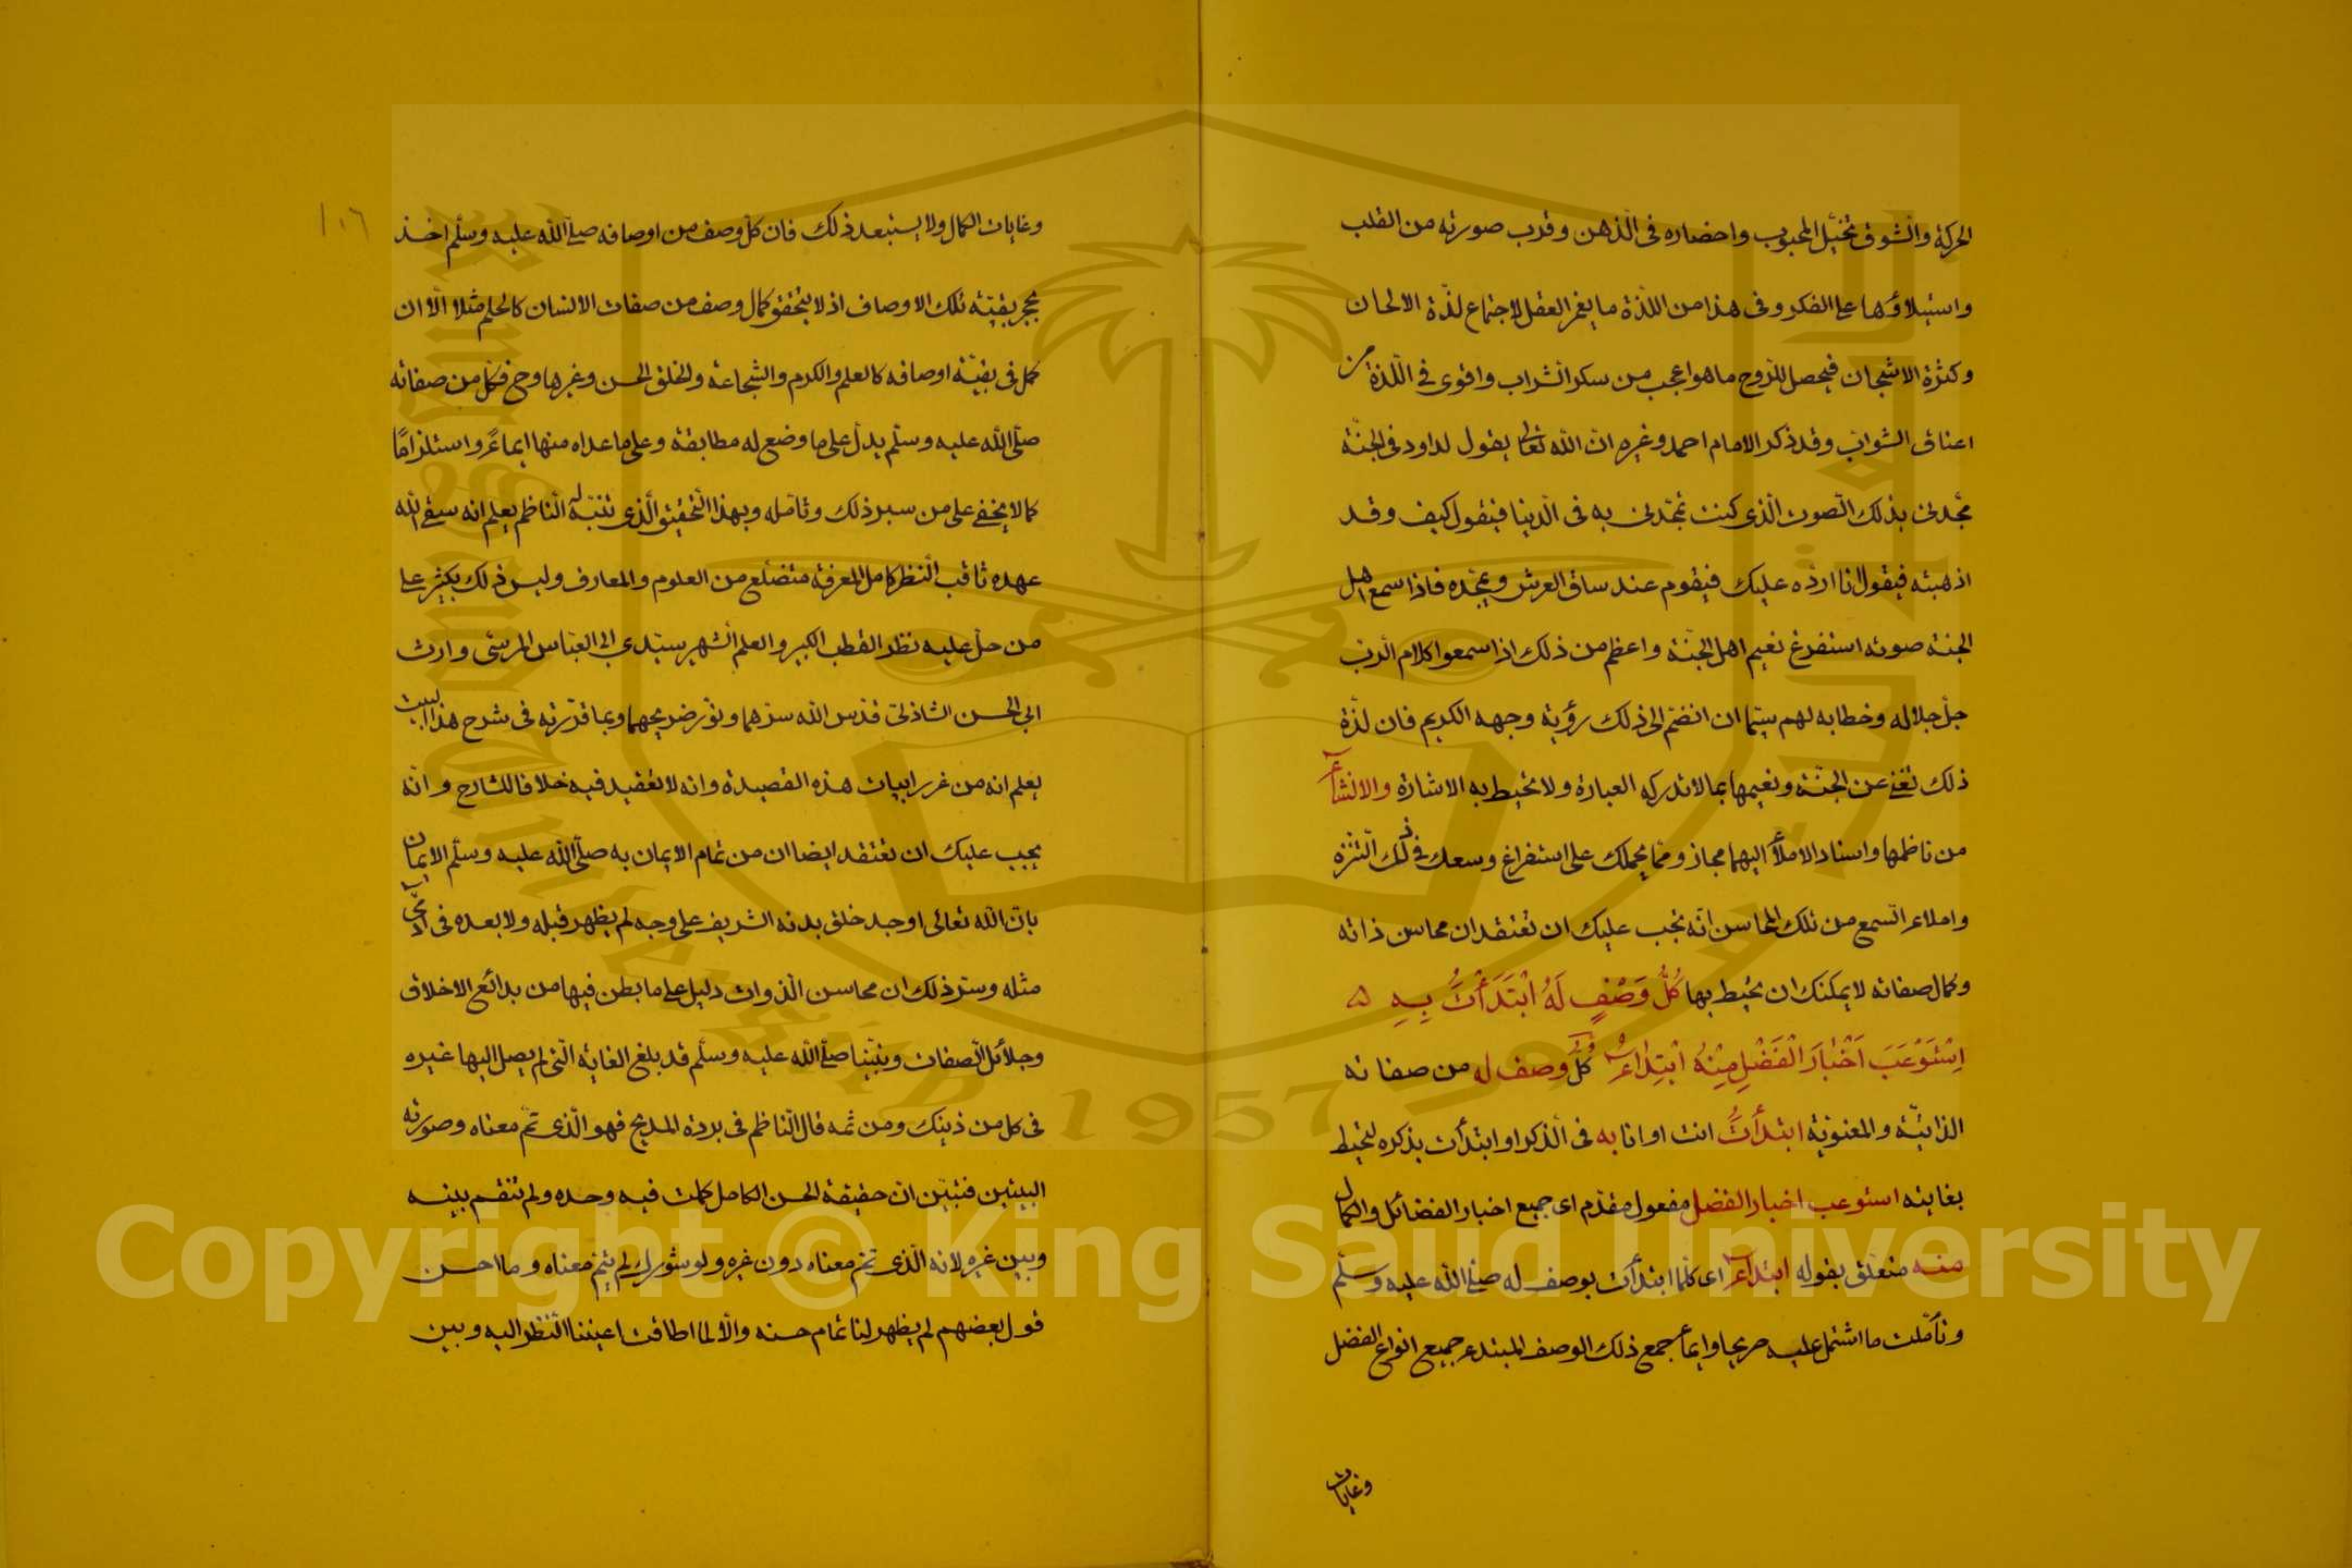 الحركة والشوق تخيّل المحبوب واحضاره فى الذهن وقرب صورته من القلب
واستيلاؤها على الفكر وفى هذا من اللذة ما يغمر العقل لاجتماع لذّة الالحان
وكثرة الاشجان فيحصل للروح ما هو اعجب من سكر الشراب واقوى فى اللذة من
اعناق الشواب وقد ذكر الامام احمد وغيره انّ الله تعالى يقول لداود فى الجنّة
مجّدنى بذلك الصوت الّذى كنت تمجّدنى به فى الدنيا فيقول كيف وقد
اذهبته فيقول انا اردّه عليك فيقوم عند ساق العرش ويمجّده فاذا سمع اهل
الجنة صوته استفرغ نعيم اهل الجنّة واعظم من ذلك اذا سمعوا كلام الربّ
جلّ جلاله وخطابه لهم سيّما ان انضمّ الى ذلك رؤية وجهه الكريم فان لذّة
ذلك تغنى عن الجنّة ونعيمها بما لا تدركه العبارة ولا تحيط به الاشارة والانشاء
من ناظمها واسناد الاملاء اليهما مجاز وممّا يحملك على استفراغ وسعك فى ذلك التنزه
واملاء السمع من تلك المحاسن انّه يجب عليك ان تعتقد ان محاسن ذاته
وكمال صفاته لا يمكنك ان تحيط بها كُلُّ وَصْفٍ لَهُ ابْتَدَأْتُ بِهِ
اِسْتَوْعَبَ اَخْبَارَ الْفَضْلِ مِنْهُ ابْتِدَاءُ كلّ وصف له من صفاته
الذاتيّة والمعنويّة ابتدأتُ انت او انا به فى الذكر او ابتدأت بذكره لتحيط
بغايته استوعب اخبار الفضل مفعول مقدّم اى جميع اخبار الفضائل والكمال
منه متعلق بقوله ابتداء اى كلّما ابتدأت بوصف له صلى الله عليه وسلّم
وتأمّلت ما اشتمل عليه صريحا وايماء جمع ذلك الوصف المبتدء جميع انواع الفضل
وغايات
١٠٦
وغايات الكمال ولا يستبعد ذلك فان كلّ وصف من اوصافه صلى الله عليه وسلّم اخذ
بحجز بقيّة تلك الاوصاف اذ لا يتحقق كمال وصف من صفات الانسان كالحلم مثلا الّا ان
كمل فى بقيّة اوصافه كالعلم والكرم والشجاعة والخلق الحسن وغيرها وح فكل من صفاته
صلّى الله عليه وسلّم يدلّ على ما وضع له مطابقة وعلى ما عداه منها ايماء واستلزامًا
كما لا يخفى على من سبر ذلك وتأمله وبهذا التحقيق الّذى تنبّه له النّاظم يعلم انه سقى الله
عهده ثاقب النظر كامل المعرفة متضلّع من العلوم والمعارف وليس ذلك بكثير على
من حلّ عليه نظر القطب الكبير والعلم الشهير سيّدى ابى العبّاس المرسى وارث
ابى الحسن الشاذلىّ قدّس الله سرّهما ونوّر ضريحهما وبما قرّرته فى شرح هذا البيت
يعلم انه من غرر ابيات هذه القصيدة وانه لا تعقيد فيه خلافا للشارح وانّه
يجب عليك ان تعتقد ايضا ان من تمام الايمان به صلّى الله عليه وسلّم الايمان
بانّ الله تعالى اوجد خلق بدنه الشريف على وجه لم يظهر قبله ولا بعده فى آدمىّ
مثله وسرّ ذلك ان محاسن الذوات دليل على ما بطن فيها من بدائع الاخلاق
وجلائل الصفات ونبيّنا صلى الله عليه وسلّم قد بلغ الغاية الّتى لم يصل اليها غيره
فى كل من ذينك ومن ثمه قال النّاظم فى بردة المديح فهو الّذى تمّ معناه وصورته
البيتين فتبيّن انّ حقيقة الحسن الكامل كملت فيه وحده ولم تنقسم بينه
وبين غيره لانه الّذى تمّ معناه دون غيره ولو شورك لم يتمّ معناه وما احسن
قول بعضهم لم يظهر لنا تمام حسنه والّا لما اطاقت اعيننا النّظر اليه وبين
Copyright © King Saud University
1957